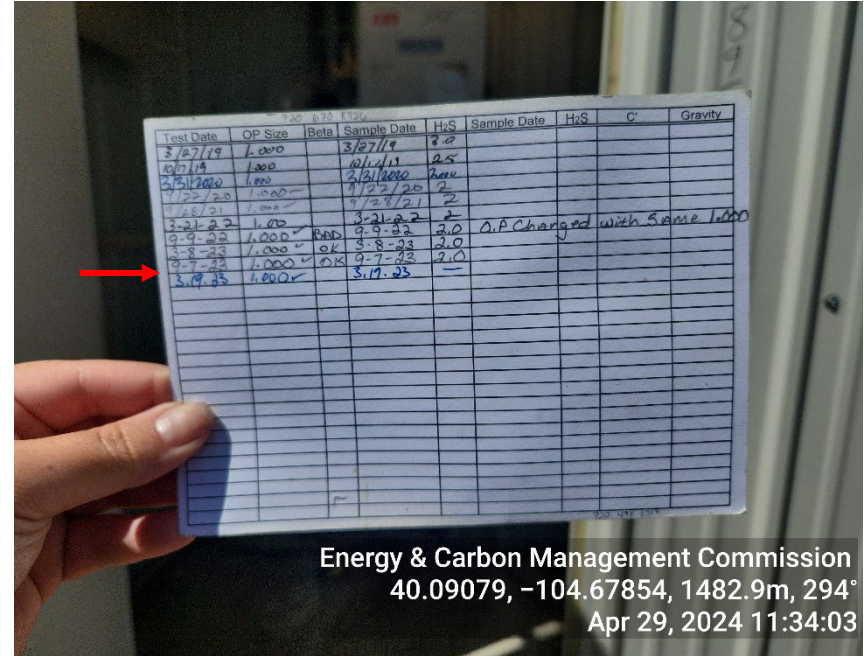 720 670 8726
Test Date OP Size Beta Sample Date H2S Sample Date H2S C' Gravity
3/27/19 1.000 3/27/19
10/7/19 1.000 25
3/31/2020 1.000 3/31/2020
9/22/20 1.000 9/22/20 2
9/28/21 1.000 9/28/21 2
3-21-22 1.00 3-21-22 2
9-9-22 1.000 ✓ BAD 9-9-22 2.0 O.P Changed with Same 1.000
3-8-23 1.000 ✓ OK 3-8-23 2.0
9-7-23 1.000 ✓ OK 9-7-23 2.0
3.19.23 1.000 ✓ 3.19.23 —
Energy & Carbon Management Commission
40.09079, −104.67854, 1482.9m, 294°
Apr 29, 2024 11:34:03